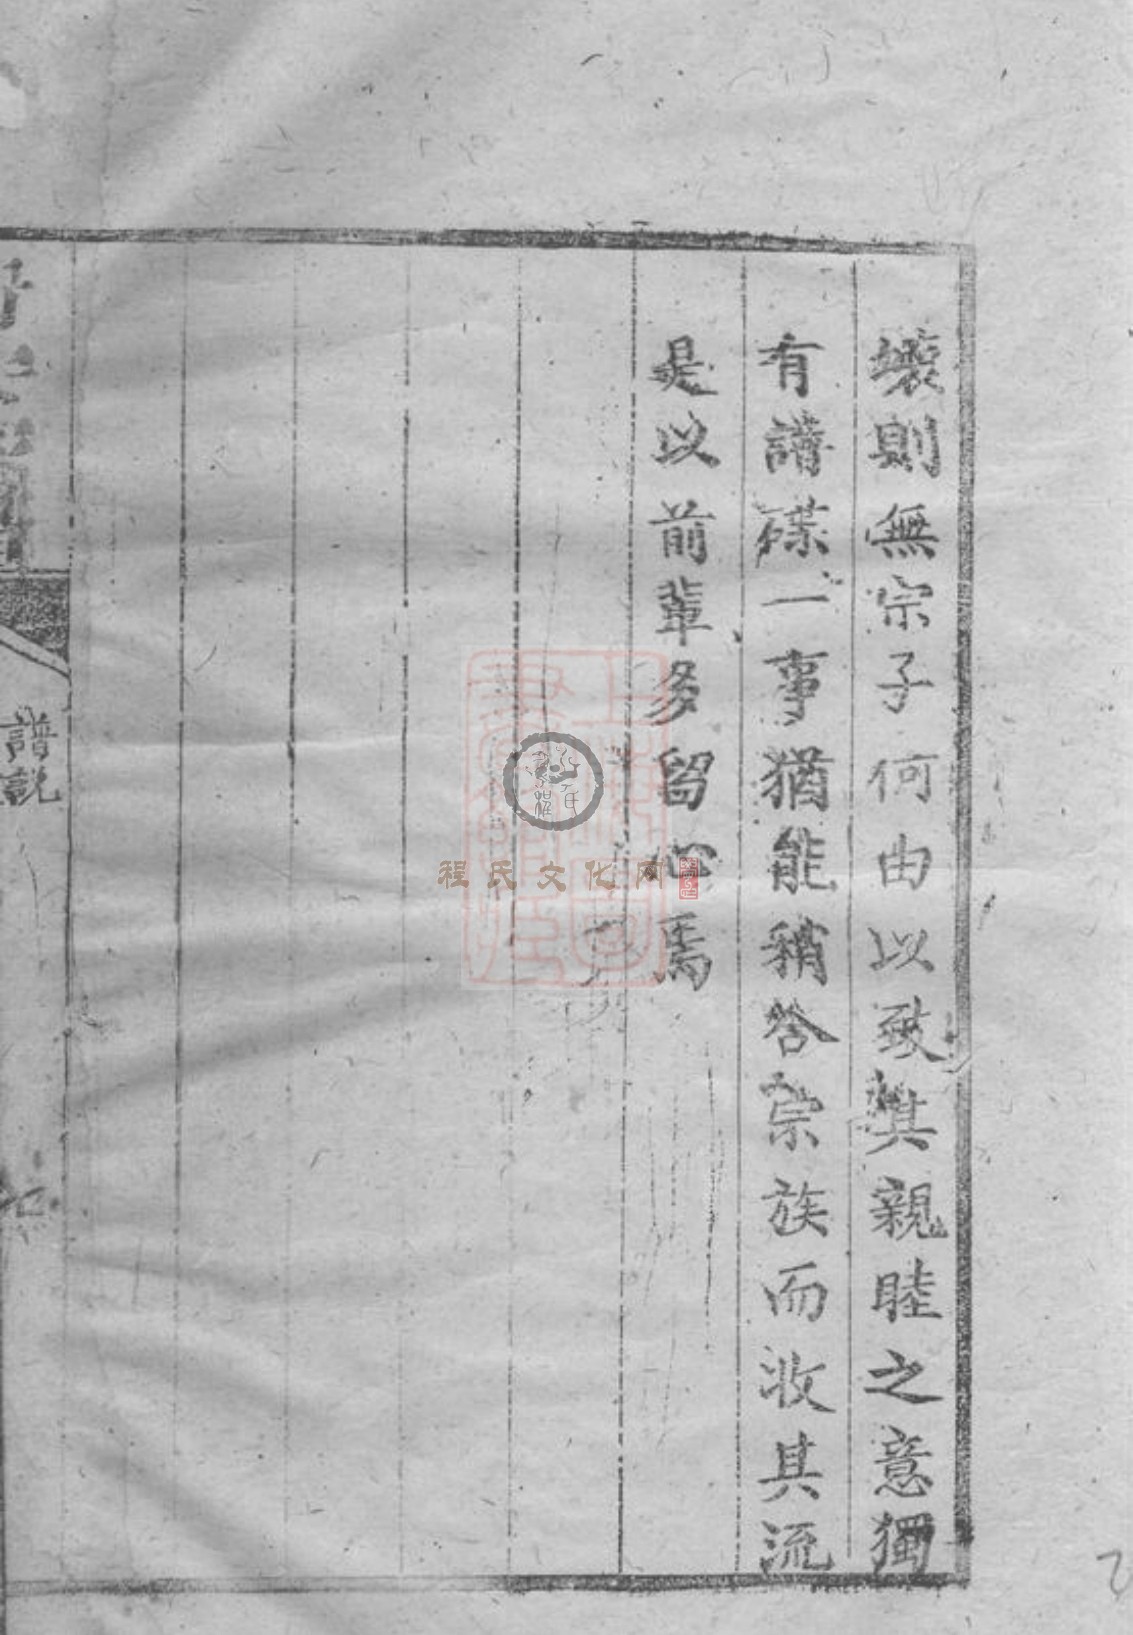 壞則無宗子何由以致其親睦之意獨
有譜牒一事猶能稍合宗族而收其流
是以前輩多留心焉
譜說
程氏文化网